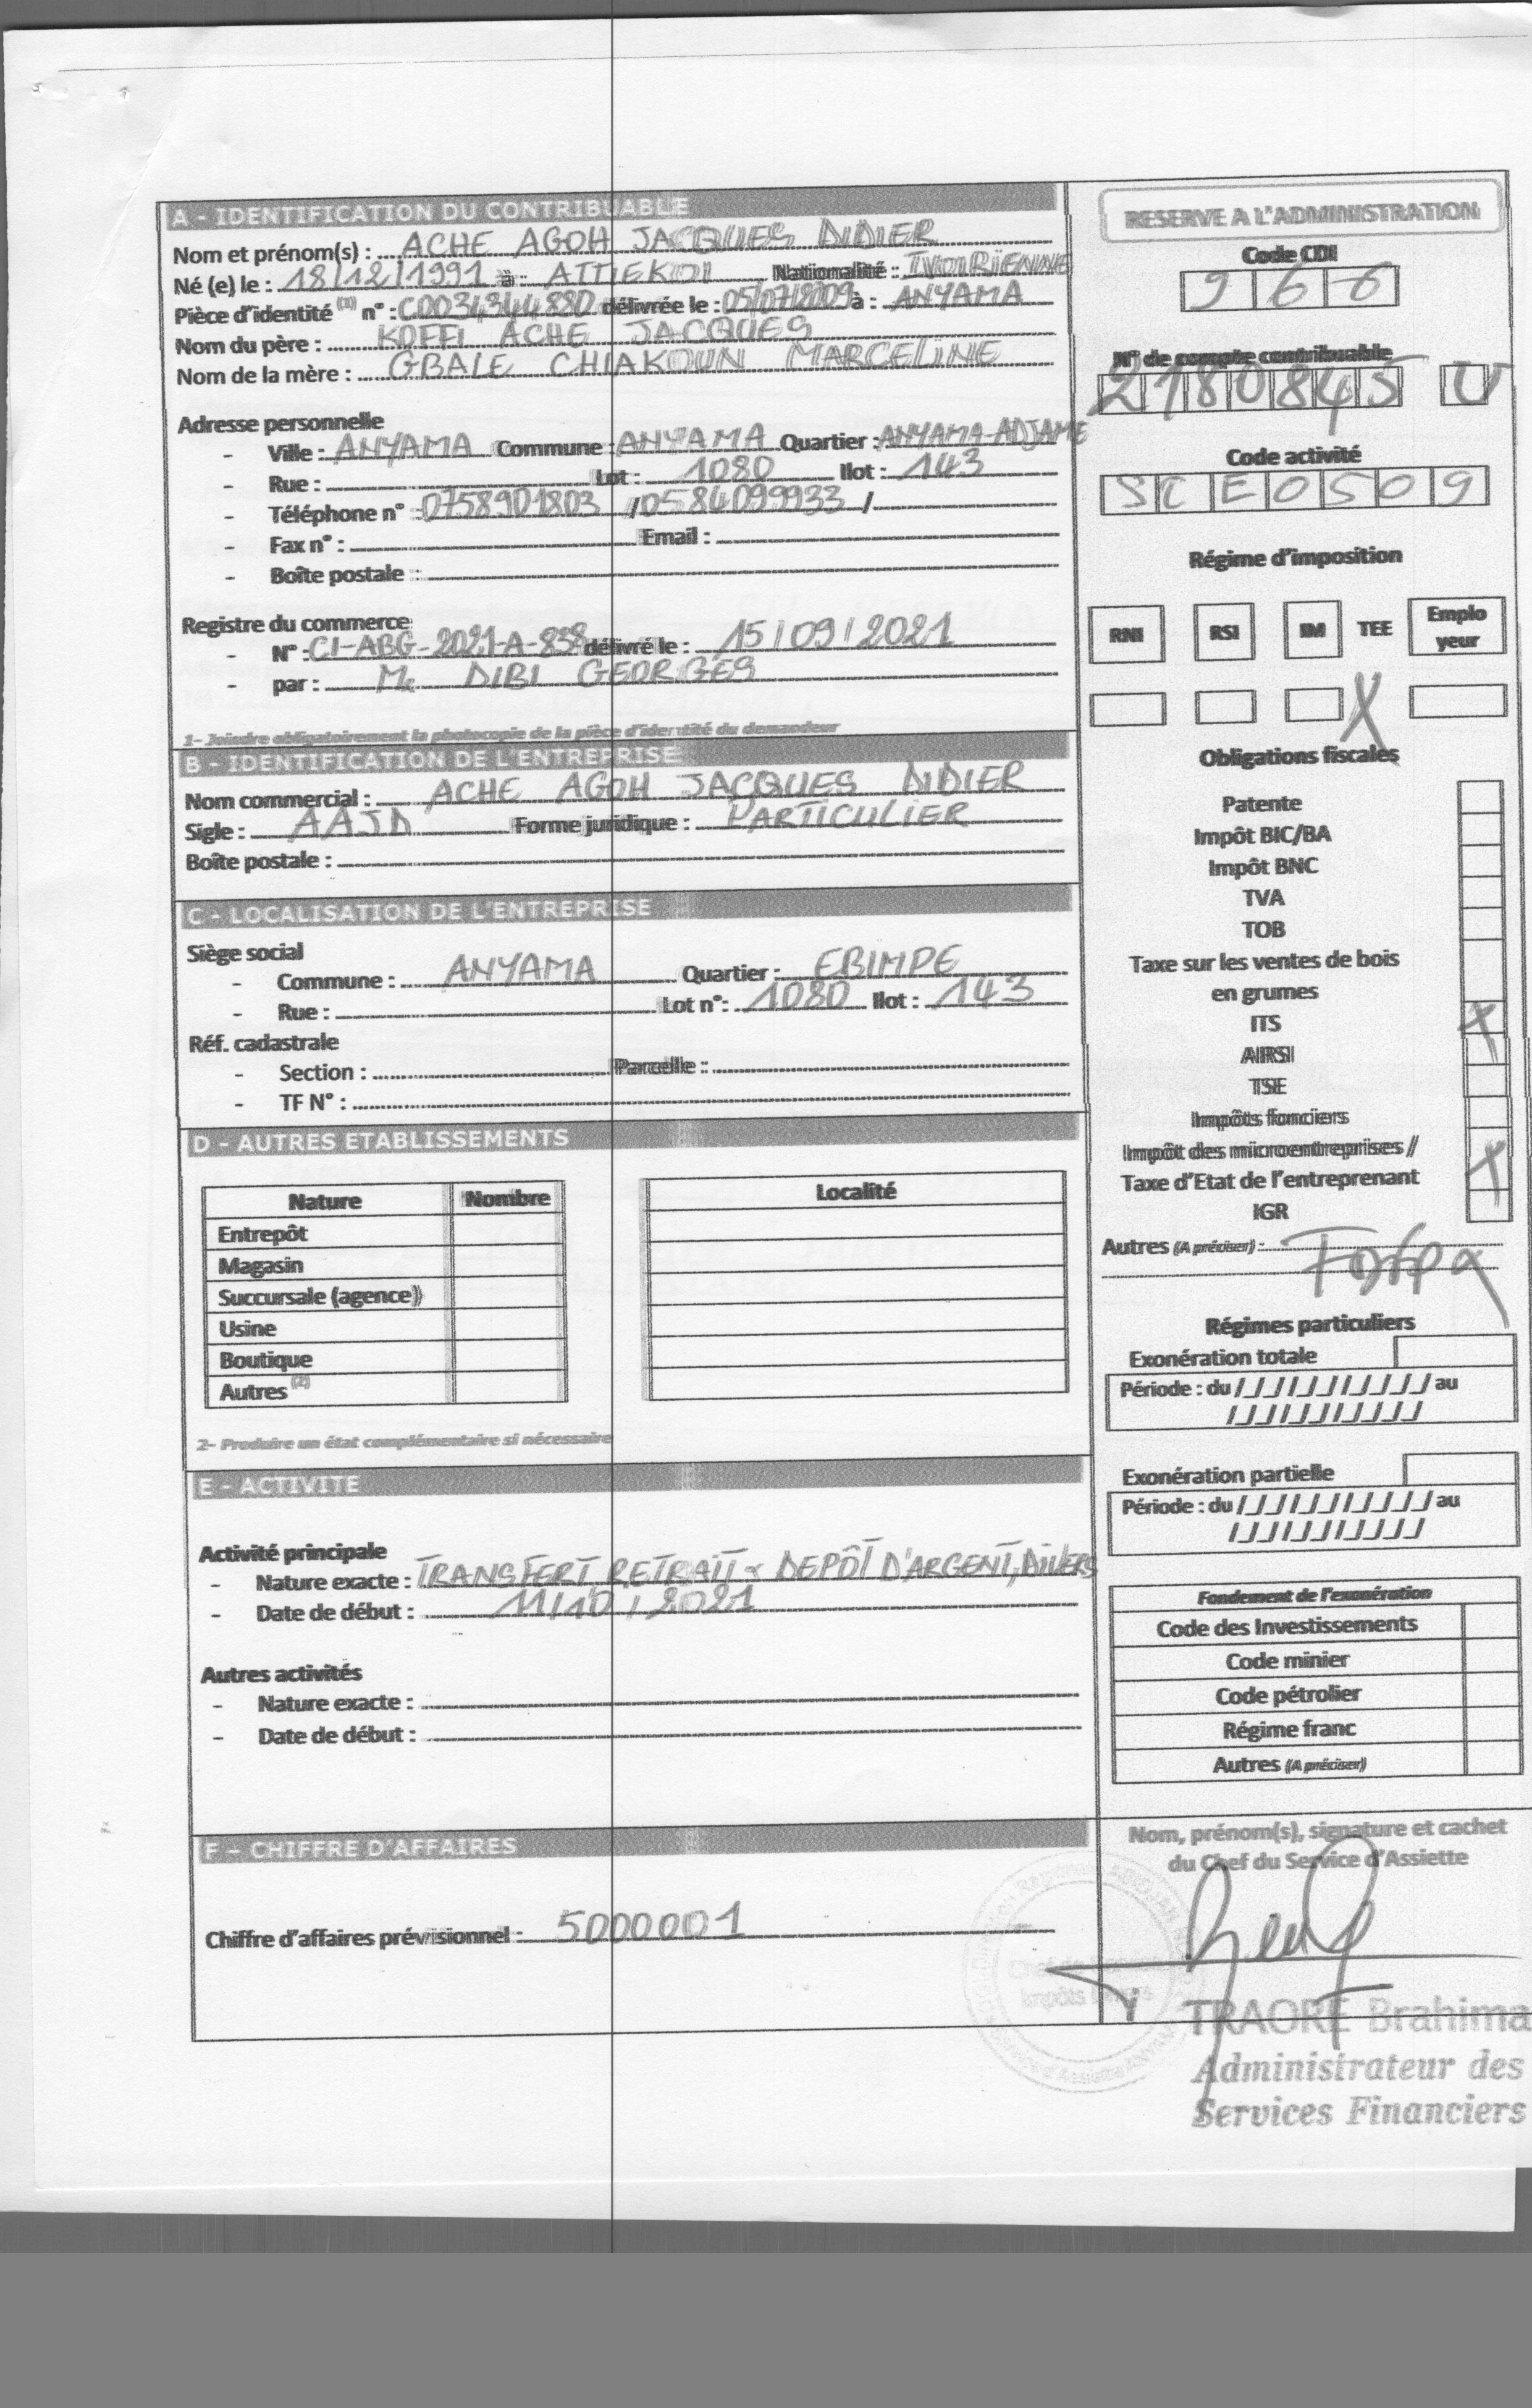 A - IDENTIFICATION DU CONTRIBUABLE
Nom et prénom(s) : ACHE AGOH JACQUES DIDIER
Né (e) le : 18/12/1991 à : ATTIEKOI Nationalité : IVOIRIENNE
Pièce d'identité (1) n° : C0034344880 délivrée le : 05/07/2009 à : ANYAMA
Nom du père : KOFFI ACHE JACQUES
Nom de la mère : GBALE CHIAKOUN MARCELINE
Adresse personnelle
- Ville : ANYAMA Commune : ANYAMA Quartier : ANYAMA-ADJAME
- Rue : Lot : 1080 Ilot : 143
- Téléphone n° : 0758901803 / 0584099933 /
- Fax n° : Email :
- Boîte postale :
Registre du commerce
- N° : CI-ABG-2021-A-838 délivré le : 15/09/2021
- par : Me DIBI GEORGES
1- Joindre obligatoirement la photocopie de la pièce d'identité du demandeur
B - IDENTIFICATION DE L'ENTREPRISE
Nom commercial : ACHE AGOH JACQUES DIDIER
Sigle : AAJD Forme juridique : PARTICULIER
Boîte postale :
C - LOCALISATION DE L'ENTREPRISE
Siège social
- Commune : ANYAMA Quartier : EBIMPE
- Rue : Lot n° : 1080 Ilot : 143
Réf. cadastrale
- Section : Parcelle :
- TF N° :
D - AUTRES ETABLISSEMENTS
Nature Nombre Localité
Entrepôt
Magasin
Succursale (agence)
Usine
Boutique
Autres (2)
2- Produire un état complémentaire si nécessaire
E - ACTIVITE
Activité principale
- Nature exacte : TRANSFERT RETRAIT - DEPÔT D'ARGENT, DIVERS
- Date de début : 11/10/2021
Autres activités
- Nature exacte :
- Date de début :
F - CHIFFRE D'AFFAIRES
Chiffre d'affaires prévisionnel : 5000001
RESERVE A L'ADMINISTRATION
Code CDI
966
N° de compte contribuable
2180845 U
Code activité
SCE0509
Régime d'imposition
RNI RSI IM TEE Emplo
yeur
X
Obligations fiscales
Patente
Impôt BIC/BA
Impôt BNC
TVA
TOB
Taxe sur les ventes de bois
en grumes
ITS X
AIRSI
TSE
Impôts fonciers
Impôt des microentreprises /
Taxe d'Etat de l'entreprenant X
IGR
Autres (A préciser) :
Régimes particuliers
Exonération totale
Période : du /_/_/_/_/_/_/_/_/_/_/ au
/_/_/_/_/_/_/_/_/_/_/
Exonération partielle
Période : du /_/_/_/_/_/_/_/_/_/_/ au
/_/_/_/_/_/_/_/_/_/_/
Fondement de l'exonération
Code des Investissements
Code minier
Code pétrolier
Régime franc
Autres (A préciser)
Nom, prénom(s), signature et cachet
du Chef du Service d'Assiette
TRAORE Brahima
Administrateur des
Services Financiers